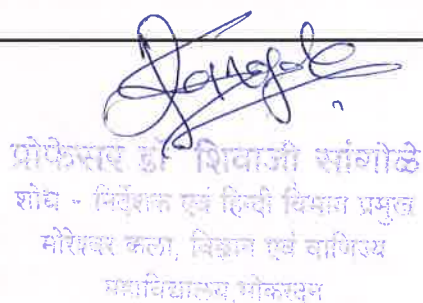 प्रोफेसर डॉ शिवाजी सांगोळे
शोध - निर्देशक एवं हिन्दी विभाग प्रमुख
मोरेश्वर कला, विज्ञान एवं वाणिज्य
महाविद्यालय, भोकरदन